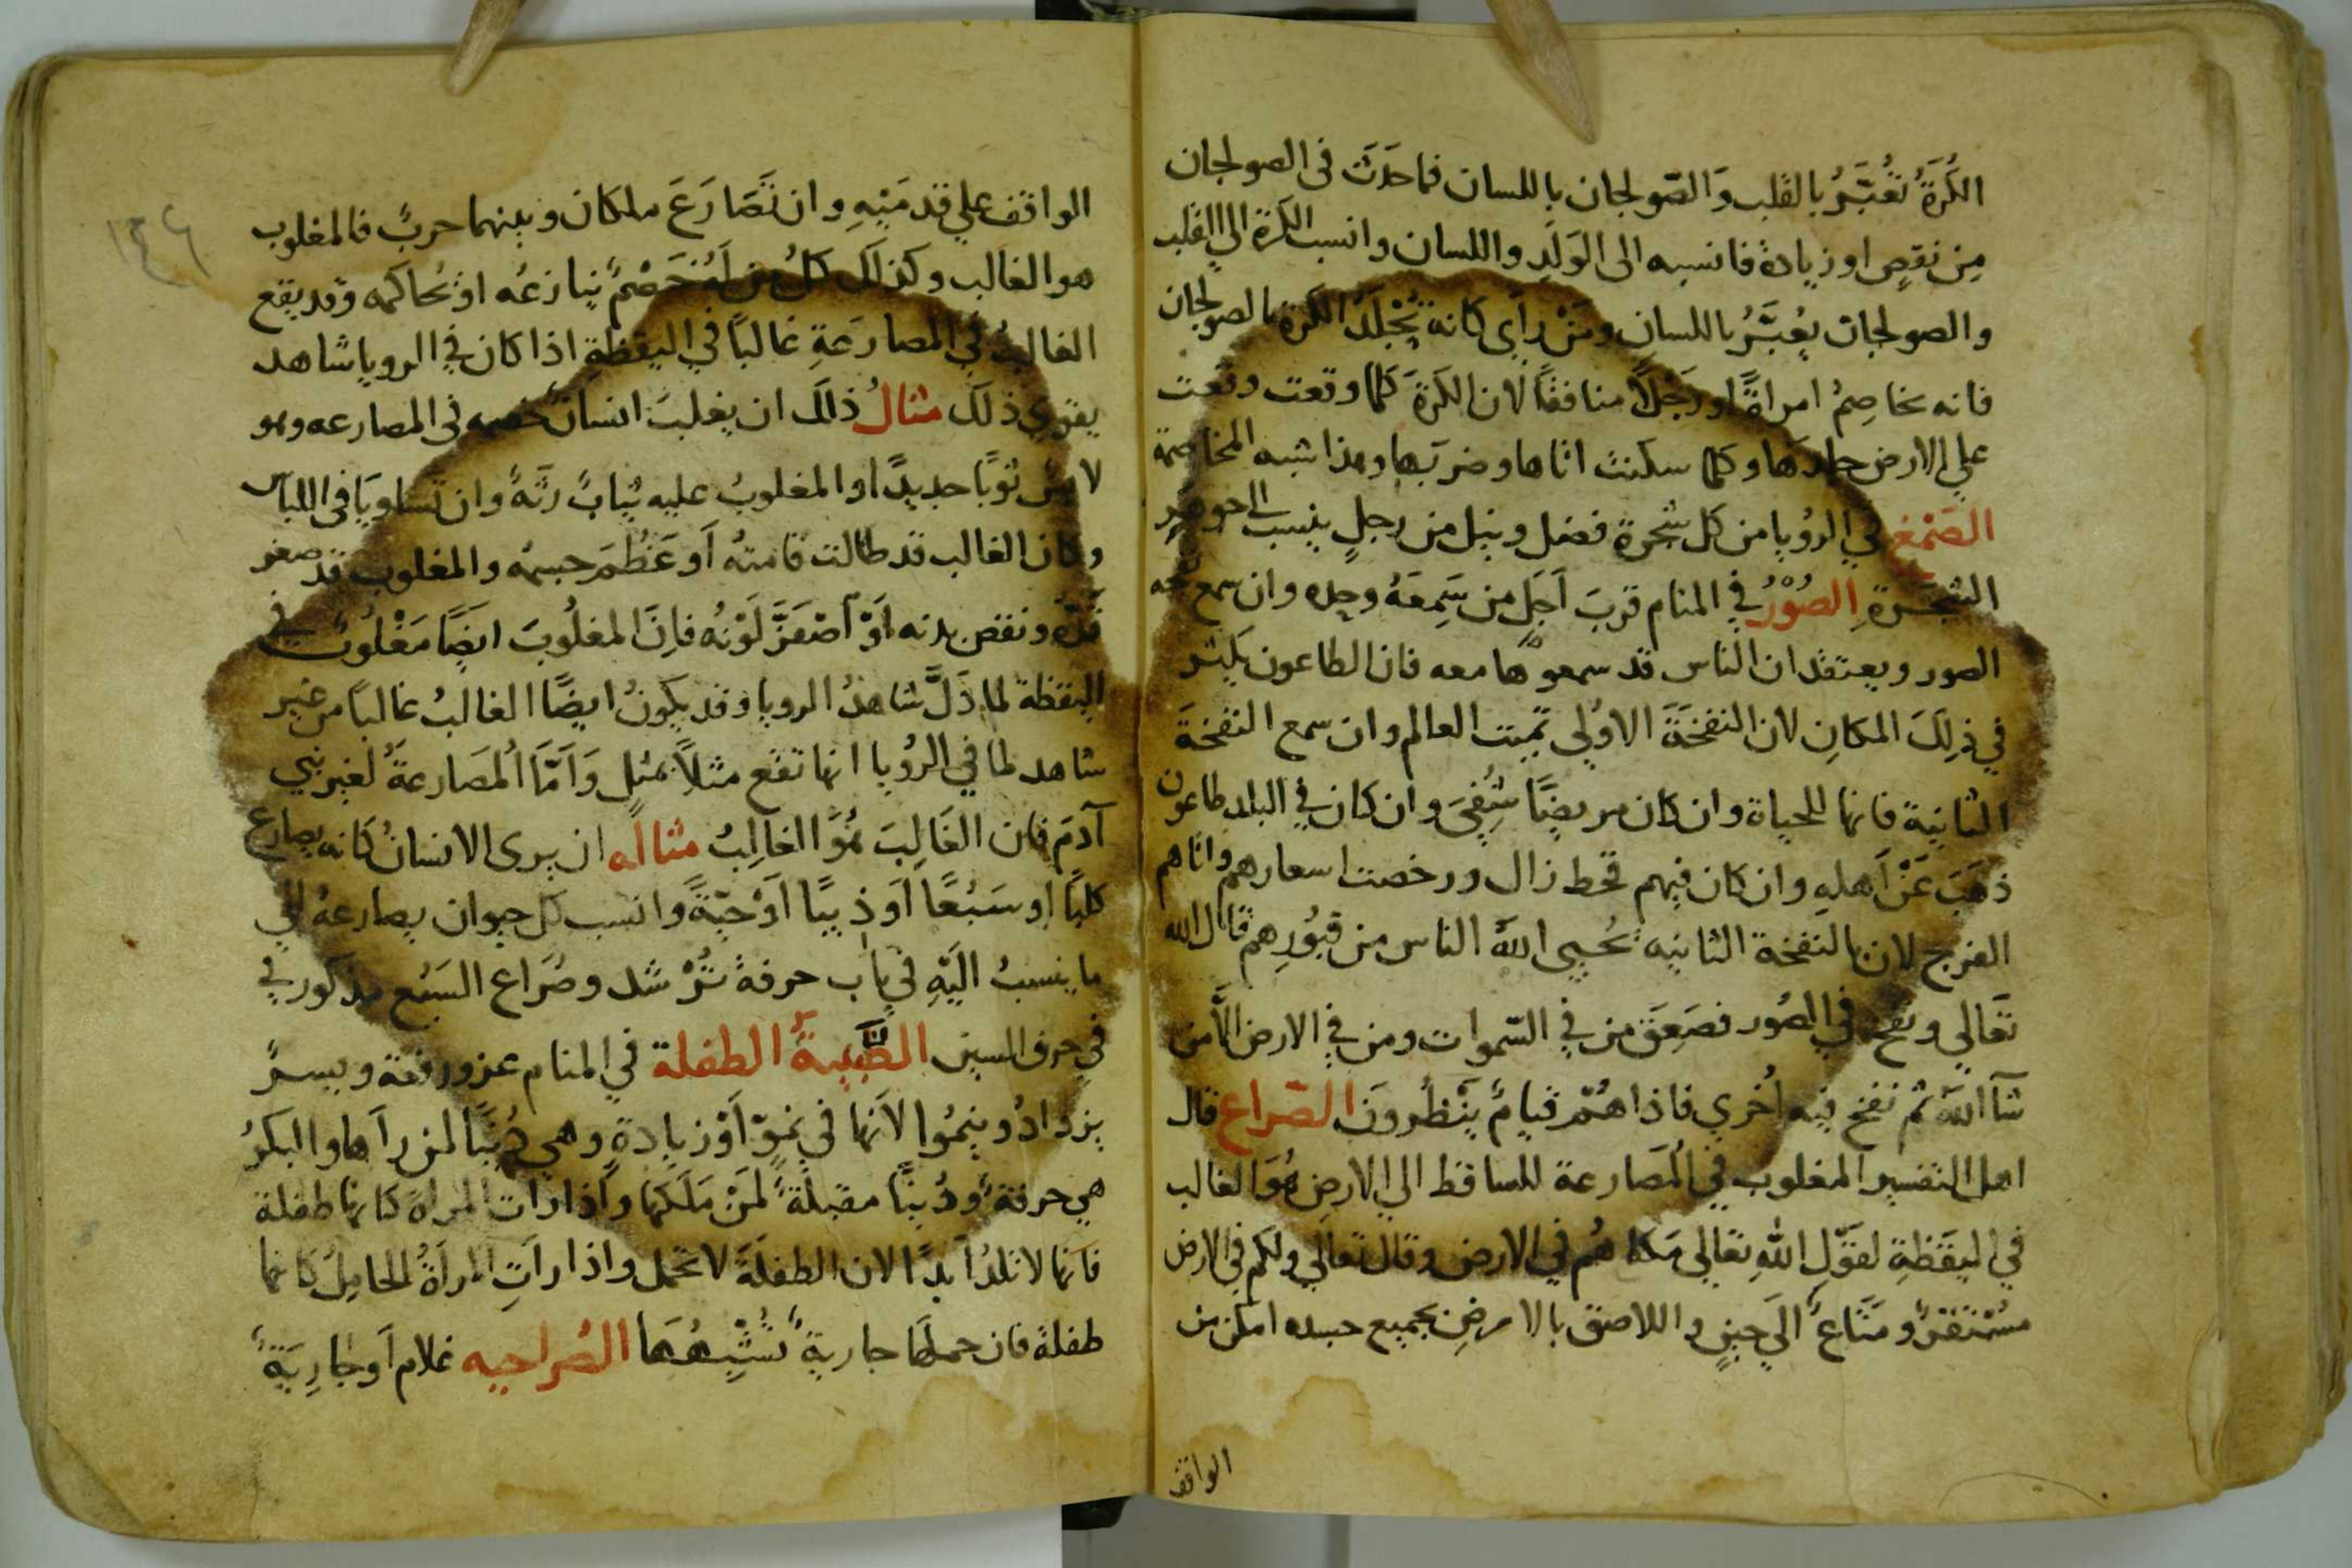 الكُرَةُ تُعَبَّرُ بالقلب وَالصّولجان باللسان فما حَدَثَ فى الصولجان
مِن نقصٍ او زيادة فانسبه الى الوَلَدِ واللسان وانسب الكرة الى القلب
والصولجان يُعبَّرُ باللسانِ ومَنْ رأى كانه يَجْلِدُ الكُرة بالصولجان
فانه يخاصِمُ امراةً او رَجُلاً منافقًا لان الكُرَةَ كلما وقعت وقعت
على الارض جلدها وكلما سكنت اتاها وضربها وهذا شبه المخاصمة
الصَمْغ في الروُيا من كل شجرة فضل ونيل من رجلٍ ينسب الى جوهر
الشجَرَةِ الصُوْرُ في المنام قربَ اَجَلِ من سَمِعَهُ وحده وان سمع نفخه
الصور ويعتقد ان الناس قد سمعوها معه فان الطاعون يكثر
في ذلِكَ المكانِ لان النفخَةَ الاوُلى تميت العالم وان سمع النفخةَ
الثانيةَ فانها للحياة وان كان مريضًا شُفِيَ وان كان في البلد طاعون
ذهَبَ عَنْ اَهلهِ وان كان فيهم قحط زال ورخصت اسعارهم واتاهم
الفرج لان بالنفخة الثانيه يُحيى اللهُ الناس من قبُورِهم قال الله
تَعالى ونفخ في الصُور فصَعِقَ من في السّموات ومن في الارض الاَّ من
شآ اللهُ ثم نفخ فيه اُخرى فاذا هُمْ قيامٌ يَنْظرونَ الصّراع قال
اهل التفسير المغلوب في المُصَارعة للساقط الى الارضِ هُوَ الغالب
في اليقَظةِ لقوّلِ اللهِ تعالى مَكنا هُم في الارض وقال تعالى ولكم فى الارض
مسْتقرٌ ومَتَاعٌ الَى حينٍ واللاصق بالارضِ بجميع جسده امكن من
الواقف
١٤٦
الواقف على قدمَيْهِ وان تَصَارَعَ ملكان وبينهما حربٌ فالمغلوب
هو الغالب وكذلك كلُ من لَهُ خَصْمٌ ينازعُه او يُحاكمه وقد يقع
الغالبُ في المصارعَةِ غالباً في اليقظةِ اذا كان في الرويا شاهد
يقوي ذلك مثالُ ذلك ان يغلبَ انسانٌ خصمه فى المصارعه وهو
لابسٌ ثوبًا جديدًا والمغلوبُ عليه ثيابٌ رثَّهٌ وان تساويَا فى اللباس
وكان الغالب قد طالت قامتهُ اَو عَظُمَ جسمُه والمغلوب قد صغر
قدّه ونقص بدنه اَوْ اصْفَرَّ لَوْنُه فاِنَّ المغلُوبَ ايضًا مَغْلوُبٌ في
اليقظة لما دَلَّ شاهدُ الرويا وقد يكونُ ايضًا الغالبُ غالباً من غير
شاهد لما في الرُويا انها تقع مثلاً بمثلٍ وَاَمَّا المُصَارعةَُ لغير بني
آدمَ فان الغَالِبَ هُوَ الغالِبُ مثاله ان يرى الانسانُ كَانه يصارع
كلبًا او سَبُعًا اَو ذيبًا اَوْحيّةً وانسب كل حيوان يصارعهُ الى
ما ينسبُ اليْهِ في باب حرفهِ تُرْشَد وصُرَاع السَبُع مذكور في
في حرف السين الصَّبِيةُ الطفلة في المنام عز ورفعة ويسرٌ
يزدادُ وينمُوا لاَنها في نموّ اَوْ زيادةٍ وهي دُنيًا لمن راَها والبكرُ
هي حرفةٌ ودُنيًا مقبلةٌ لمَنْ مَلَكها واذا رات المراة كانها طفلة
فانها لا تلدُ اَبدًا لان الطفلَةَ لا تحمل واذا راتِ المراَةُ الحامِلُ كانها
طفلة فان حملها جاريةٌ تُشْبِهُهَا الصُراحيه غلام اَو جارِيَةٌ